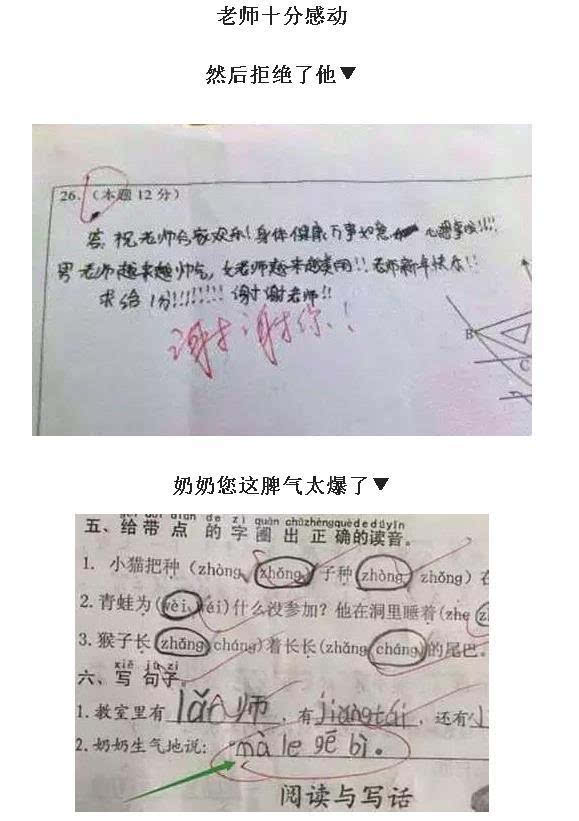 老师十分感动
然后拒绝了他▼
26.（本题12分）
答,祝老师合家欢乐!身体健康万事如意 心想事成!!!!
男老师越来越帅气,女老师越来越美丽!!老师新年快乐!!
求给1分!!!!!!!!谢谢老师!!
谢谢你!!
B
C
奶奶您这脾气太爆了▼
de zì quān chū zhèng què de dú yīn
五、给带点的字圈出正确的读音。
1. 小猫把种（zhòng zhǒng）子种（zhòng zhǒng）在
2. 青蛙为（wèi wéi）什么没参加？他在洞里睡着（zhe
3. 猴子长（zhǎng cháng）着长长（zhǎng cháng）的尾巴。
xiě jù zi
六、写句子。
1. 教室里有 lǎo师 ,有 jiǎngtái ,还有小
2. 奶奶生气地说: "mà le gē bì 。
阅读与写话